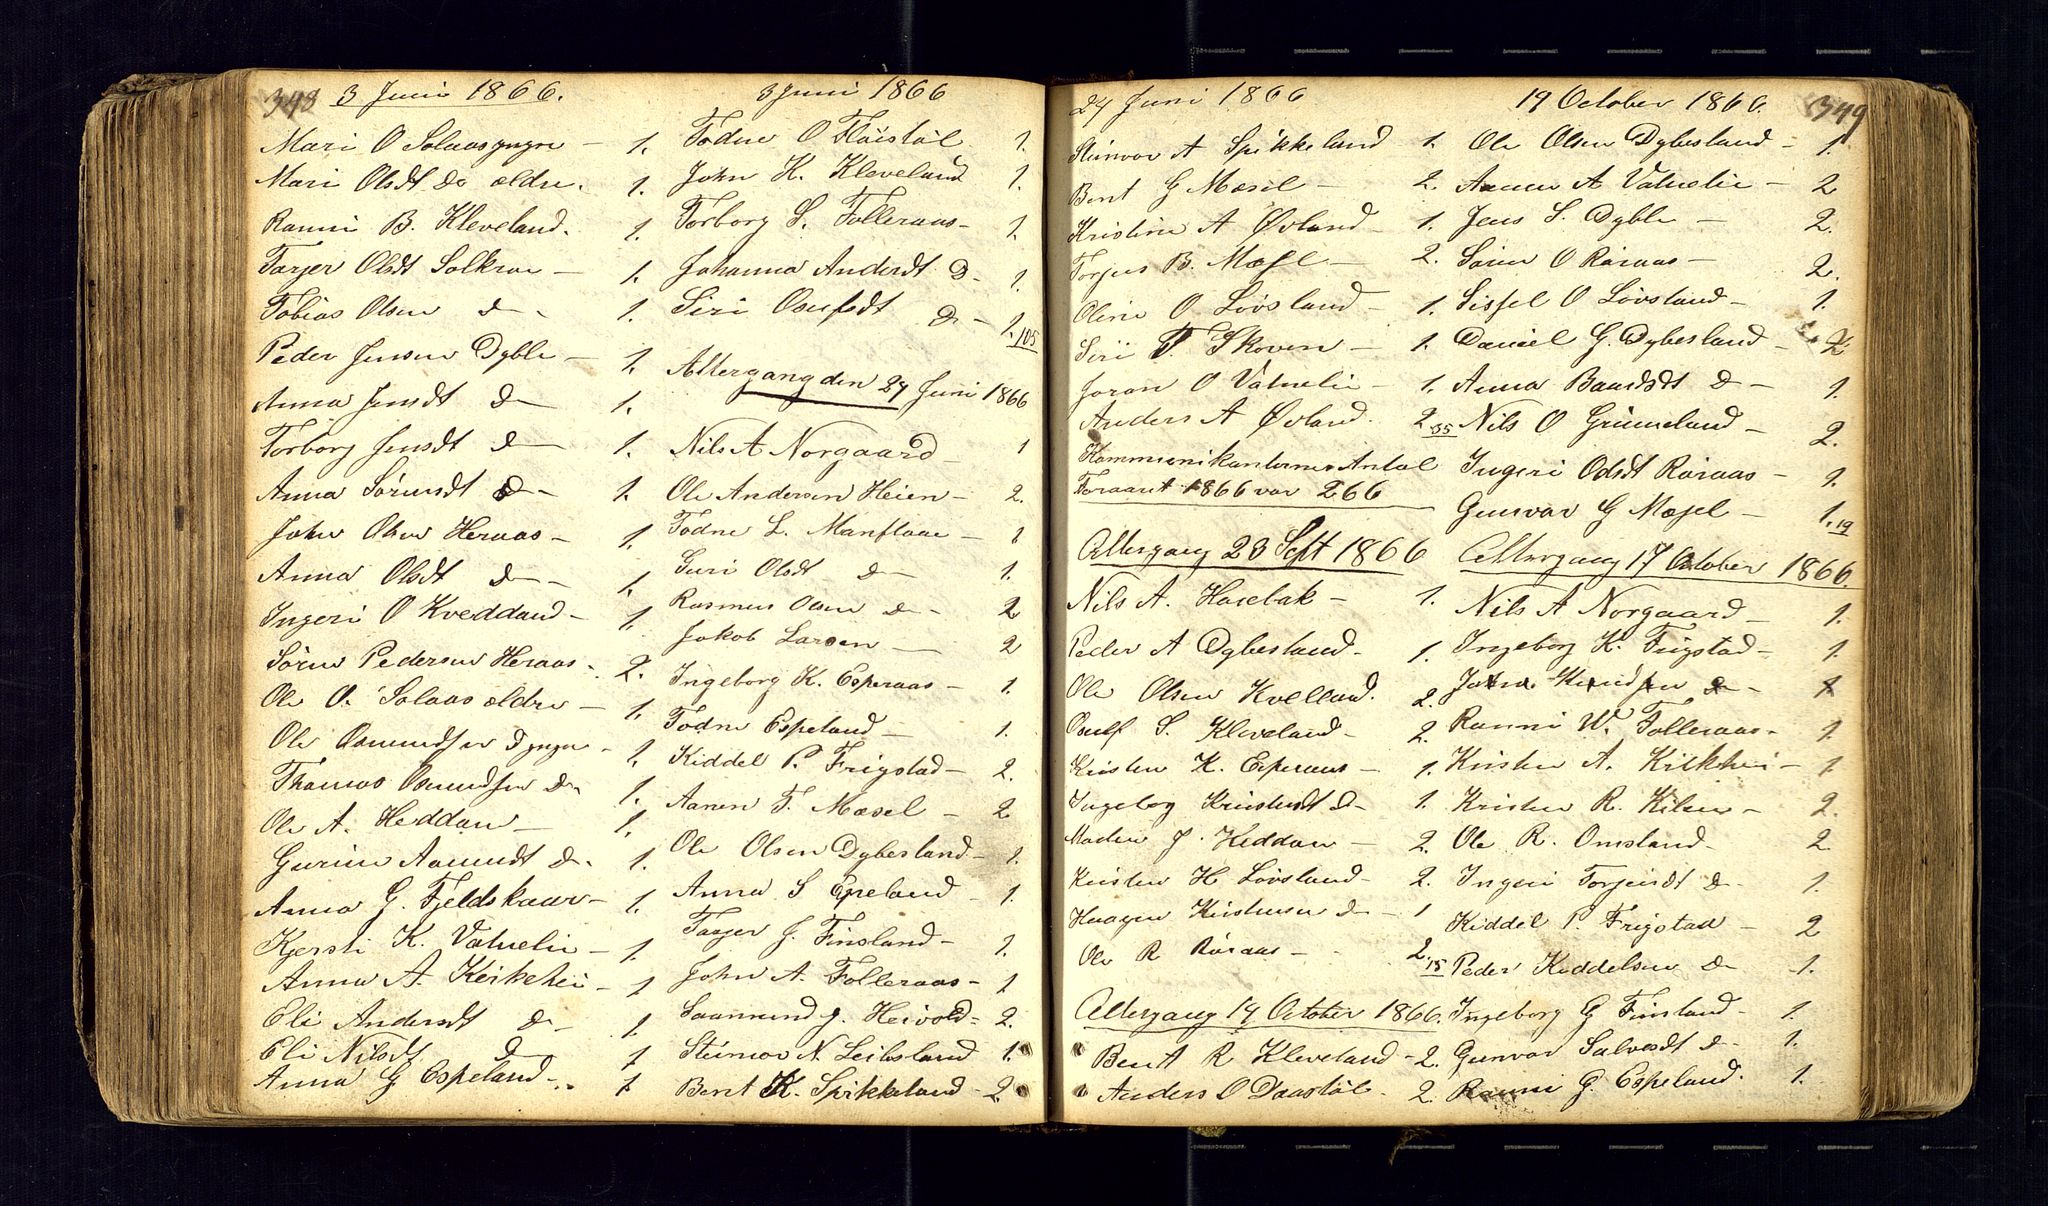 348
3 Juni 1866.
Mari O Solaas yngre — 1.
Mari Olsdt Do ældre. 1.
Ranni B. Kleveland. 1.
Tarjer Olsdt Solkroe — 1.
Tobias Olsen D — 1.
Peder Jensen Dyble — 1.
Anna Jensdt D — 1.
Torborg Jensdt D — 1.
Anna Sørensdt D — 1.
John Olsen Heraas — 1.
Anna Olsdt D — 1.
Ingeri O Kveddand — 1.
Søren Pedersen Heraas. 2.
Ole O. Solaas ældre — 1.
Ole Osmundsen D yngre — 1.
Thomas Osmundsen D — 1.
Ole A. Heddan — 1.
Gurine Aamundt D. 1.
Anna G. Fjeldskaar — 1.
Kjersti K. Vatnelie — 1.
Anna A. Keikehei — 1
Eli Andersdt D — 1.
Eli Nilsdt D 1
Anna G Espeland — 1.
3 Juni 1866
Todne O Fløistøl 1.
John K. Kleveland 1.
Torborg S. Folleraas — 1.
Johanna Andersdt D — 1.
Siri Osulfsdt D — 1. 105
Altergang den 24 Juni 1866
Nils A Norgaard — 1
Ole Andersen Heien — 2.
Todne L. Manflaae — 1
Guri Olsdt D — 1.
Rasmus Olsen D — 2
Jakob Larsen — 2
Ingeborg K. Esperaas — 1.
Todne Espeland — 1.
Kiddel P. Frigstad — 2.
Aanen T. Mæsel — 2
Ole Olsen Dybesland — 1.
Anna S Espeland — 1.
Taajer G. Finsland — 1.
John A. Folleraas — 1
Saamund J. Heivold — 2.
Steinvor N. Leibsland 1.
Bent K. Spikkeland — 2
24 Juni 1866
Steinvor A Spikkeland 1.
Bent G Mæsel — 2.
Kristine A Øvland — 1.
Torjus B. Mæsel — 2.
Oline O Løvsland — 1.
Siri T. Skoven — 1.
Joran O Vatnelie — 1.
Anders A Øvland. 2 35
Kommunikanternes Antal
Foraaret 1866 var 266
Altergang 23 Sept 1866
Nils A. Haaebak — 1.
Peder A Dybesland — 1.
Ole Olsen Kvelland. 2.
Osulf S. Kleveland — 2.
Kristen K. Esperaas — 1.
Ingeborg Kristensdt D — 1.
Maden J. Heddan — 2.
Kristen H Løvsland — 2.
Haagen Kristensen D — 1
Ole R Røiraas — 2. 15
Altergang 14 October 1866.
Bent R Kleveland — 2.
Anders O Daastøl. 2.
19 October 1866.
349
Ole Olsen Dybesland — 1.
Aanen A Vatnelie — 2
Jens S. Dyble — 2.
Søren O Røiraas — 2.
Sissel O Løvsland — 1.
Daniel G. Dybesland — 2
Anna Baardsdt D — 1.
Nils O Grimeland — 2.
Ingeri Odsdt Røiraas — 1.
Gunvor G Mæsel — 1. 19
Altergang 17 October 1866.
Nils A Norgaard — 1.
Ingeborg K. Frigstad — 1.
John Knudsen D — 1
Ranni W. Folleraas. 1.
Kristen A. Kirkhei — 1
Kristen R. Kilen — 2.
Ole R. Omsland. 2.
Ingeri Torjersdt D — 1.
Kiddel P. Frigstad — 2
Peder Kiddelsen D — 1.
Ingeborg G Finsland — 1.
Gunvor Salvesdt D — 1.
Ranni G. Espeland. 1.